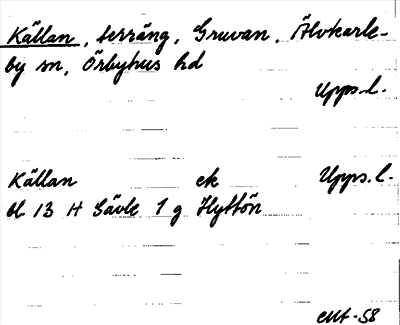 Källan, terräng, Gruvan, Älvkarle-
by sn, Örbyhus hd
Upps. l.
Källan ek Upps. l.
bl. 13 H Gävle 1 g Hyttön
-58